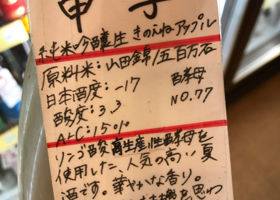 甲子
純米吟醸生 きのえねアップル
原料米:山田錦/五百万石
日本酒度:-17 酵母
酸度:3.3 NO.77
ALC:15%
リンゴ酸高生産性酵母を
使用した人気の高い夏
酒です。華やかな香り。
を思わ